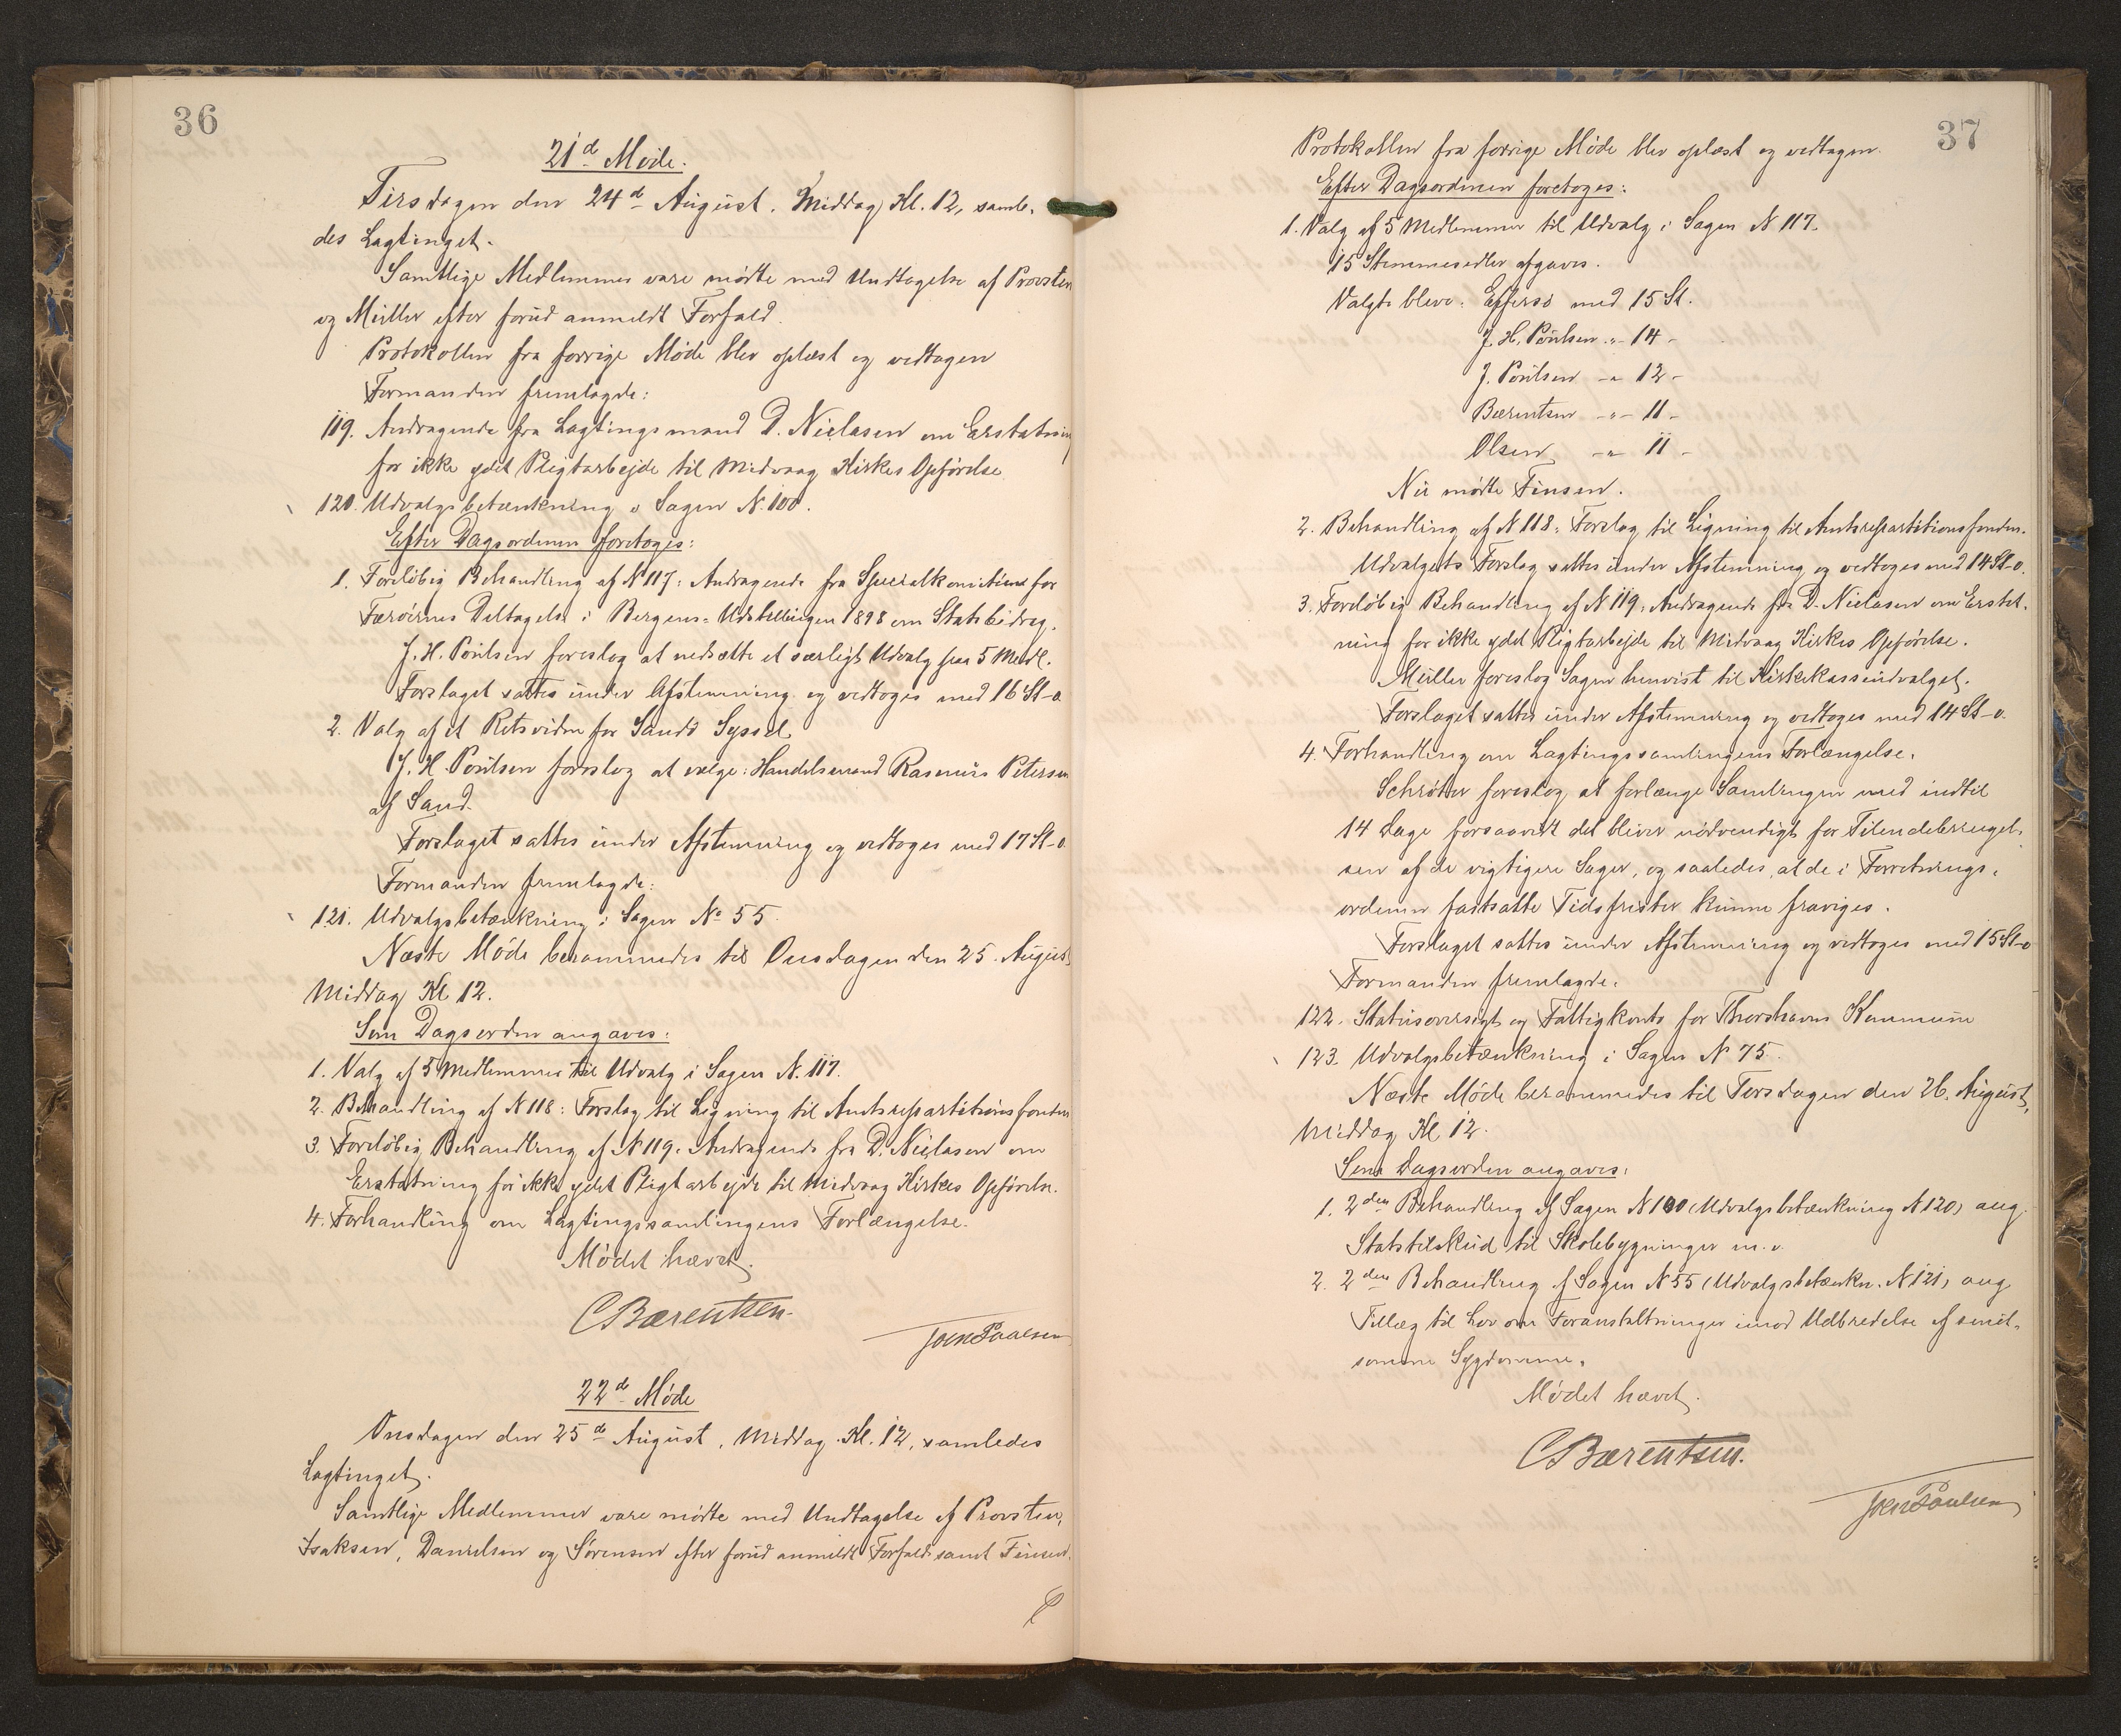 36
21d Møde.
Tirsdagen den 24d August, Middag Kl. 12, samle-
des Lagtinget.
Samtlige Medlemmer vare mødte med Undtagelse af Provsten
og Müller efter forud anmeldt Forfald.
Protokollen fra forrige Møde blev oplæst og vedtagen
Formanden fremlagde:
119. Andragende fra Lagtingsmand D. Niclasen om Erstatning
for ikke ydet Pligtarbejde til Midvaag Kirkes Opførelse
120. Udvalgsbetænkning i Sagen N. 100.
Efter Dagsordenen foretoges:
1. Foreløbig Behandling af N 117: Andragende fra Specialkomiteen for
Færøernes Deltagelse i Bergens-Udstillingen 1898 om Statsbidrag.
J. H. Poulsen foreslog at nedsætte et særligt Udvalg paa 5 Medl.
Forslaget sattes under Afstemning og vedtoges med 16 St-0.
2. Valg af et Retsvidne for Sandø Syssel
J. H. Poulsen foreslog at vælge: Handelsmand Rasmus Petersen
af Sand.
Forslaget sattes under Afstemning og vedtoges med 17 St-0.
Formanden fremlagde:
121. Udvalgsbetænkning i Sagen No 55.
Næste Møde berammedes til Onsdagen den 25. August,
Middag Kl 12.
Som Dagsorden angaves:
1. Valg af 5 Medlemmer til Udvalg i Sagen N. 117.
2. Behandling af N 118: Forslag til Ligning til Amtsrepartitionsfonden
3. Foreløbig Behandling af N 119. Andragende fra D. Niclasen om
Erstatning for ikke ydet Pligtarbejde til Midvaag Kirkes Opførelse.
4. Forhandling om Lagtingssamlingens Forlængelse.
Mødet hævet.
C Bærentsen.
Joen Poulsen
22d Møde
Onsdagen den 25de August, Middag Kl. 12, samledes
Lagtinget.
Samtlige Medlemmer vare mødte med Undtagelse af Provsten,
Isaksen, Danielsen og Sørensen efter forud anmeldt Forfald samt Finsen.
37
Protokollen fra forrige Møde blev oplæst og vedtagen.
Efter Dagsordenen foretoges:
1. Valg af 5 Medlemmer til Udvalg i Sagen N 117.
15 Stemmesedler afgaves.
Valgte bleve: Effersø med 15 St.
J. H. Poulsen -"- 14 -
J. Poulsen -"- 12 -
Bærentsen -"- 11 -
Olsen -"- 11 -
Nu mødte Finsen.
2. Behandling af N 118: Forslag til Ligning til Amtsrepartitionsfonden.
Udvalgets Forslag sattes under Afstemning og vedtoges med 14 St-0.
3. Foreløbig Behandling af N 119: Andragende fra D. Niclasen om Erstat-
ning for ikke ydet Pligtarbejde til Midvaag Kirkes Opførelse.
Müller foreslog Sagen henvist til Kirkekasseudvalget.
Forslaget sattes under Afstemning og vedtoges med 14 St-0.
4. Forhandling om Lagtingssamlingens Forlængelse.
Schrøter foreslog at forlænge Samlingen med indtil
14 Dage forsaavidt det bliver nødvendigt for Tilendebringel-
sen af de vigtigere Sager, og saaledes, at de i Forretnings-
ordenen fastsatte Tidsfrister kunne fraviges.
Forslaget sattes under Afstemning og vedtoges med 15 St-0
Formanden fremlagde:
122. Statusoversigt og Fattigkonto for Thorshavns Kommune
123. Udvalgsbetænkning i Sagen N 75.
Næste Møde berammedes til Torsdagen den 26. August,
Middag Kl 12.
Som Dagsorden angaves:
1. 2den Behandling af Sagen N 100 (Udvalgsbetænkning N 120) ang.
Statstilskud til Skolebygninger m.v.
2. 2den Behandling af Sagen N 55 (Udvalgsbetænkn. N 121) ang
Tillæg til Lov om Foranstaltninger imod Udbredelse af smit-
somme Sygdomme.
Mødet hævet.
C Bærentsen.
Joen Poulsen